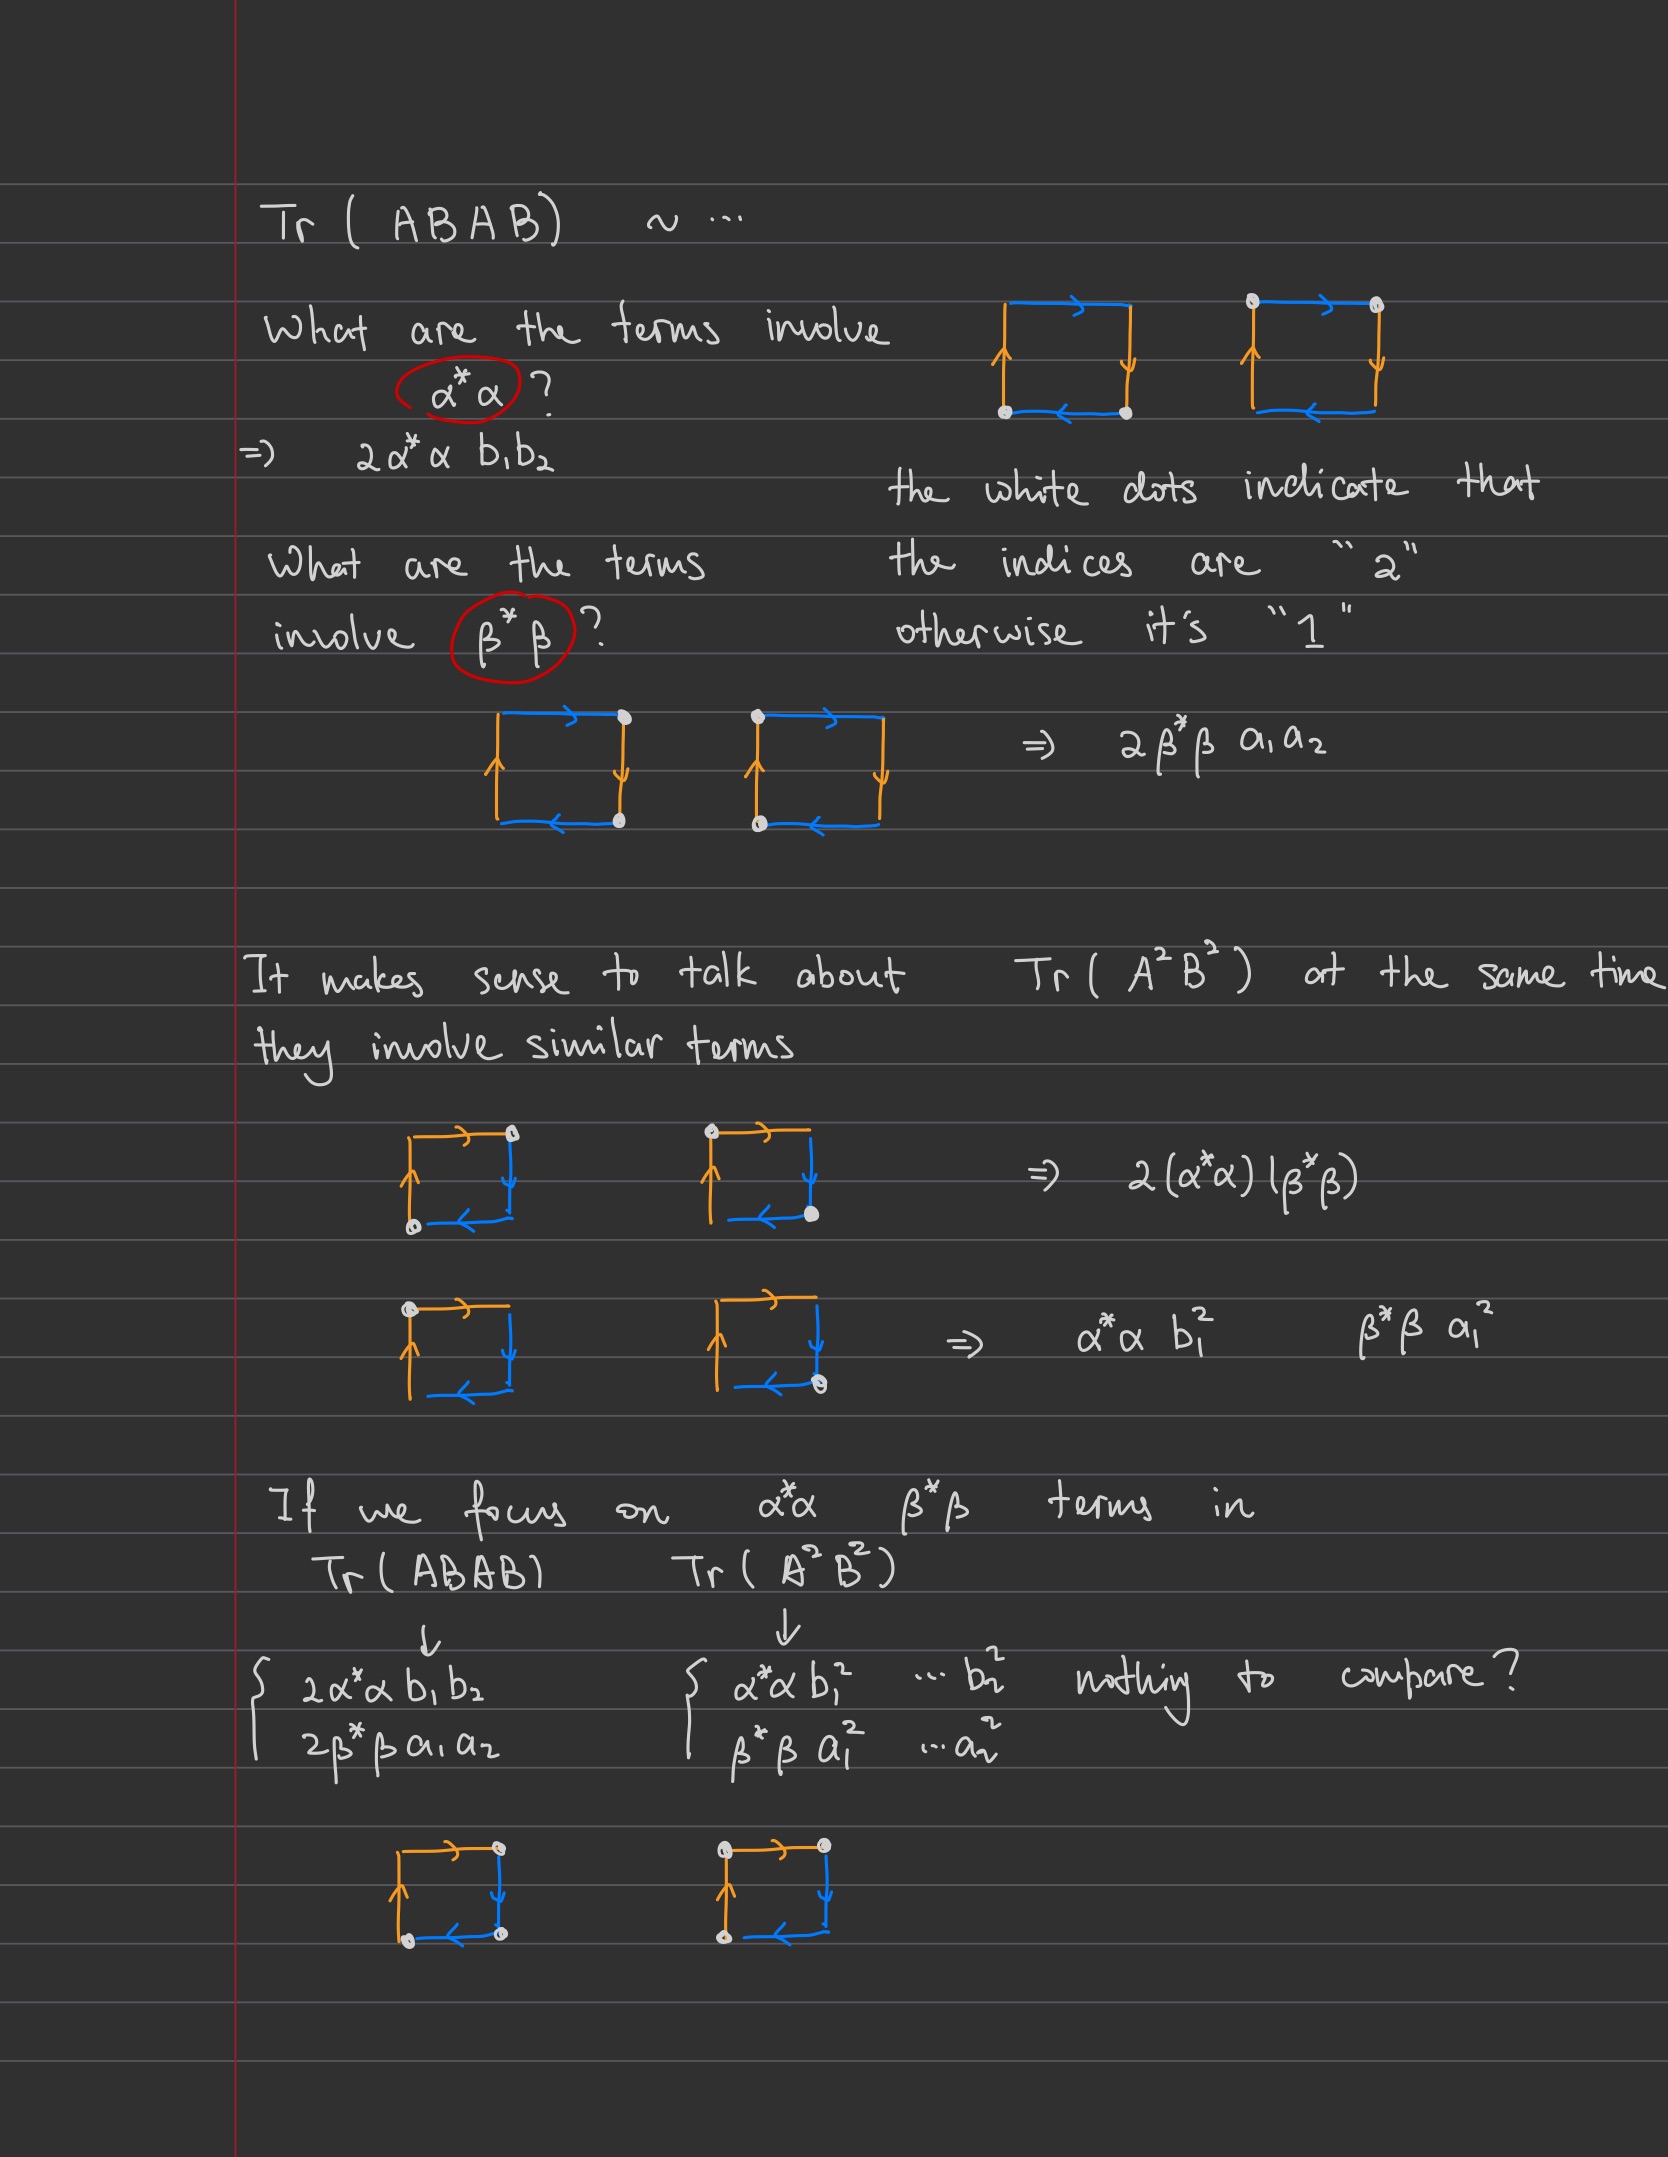 Tr ( ABAB) ~ ...
What are the terms involve
α*α ?
⇒ 2α*α b₁b₂
the white dots indicate that
the indices are "2"
otherwise it's "1"
What are the terms
involve β*β ?
⇒ 2β*β a₁a₂
It makes sense to talk about Tr( A²B²) at the same time
they involve similar terms
⇒ 2(α*α)(β*β)
⇒ α*α b₁² β*β a₁²
If we focus on α*α β*β terms in
Tr( ABAB) Tr( A²B²)
↓ ↓
{ 2α*α b₁b₂ { α*α b₁² ... b₂² nothing to compare?
2β*β a₁a₂ β*β a₁² ... a₂²